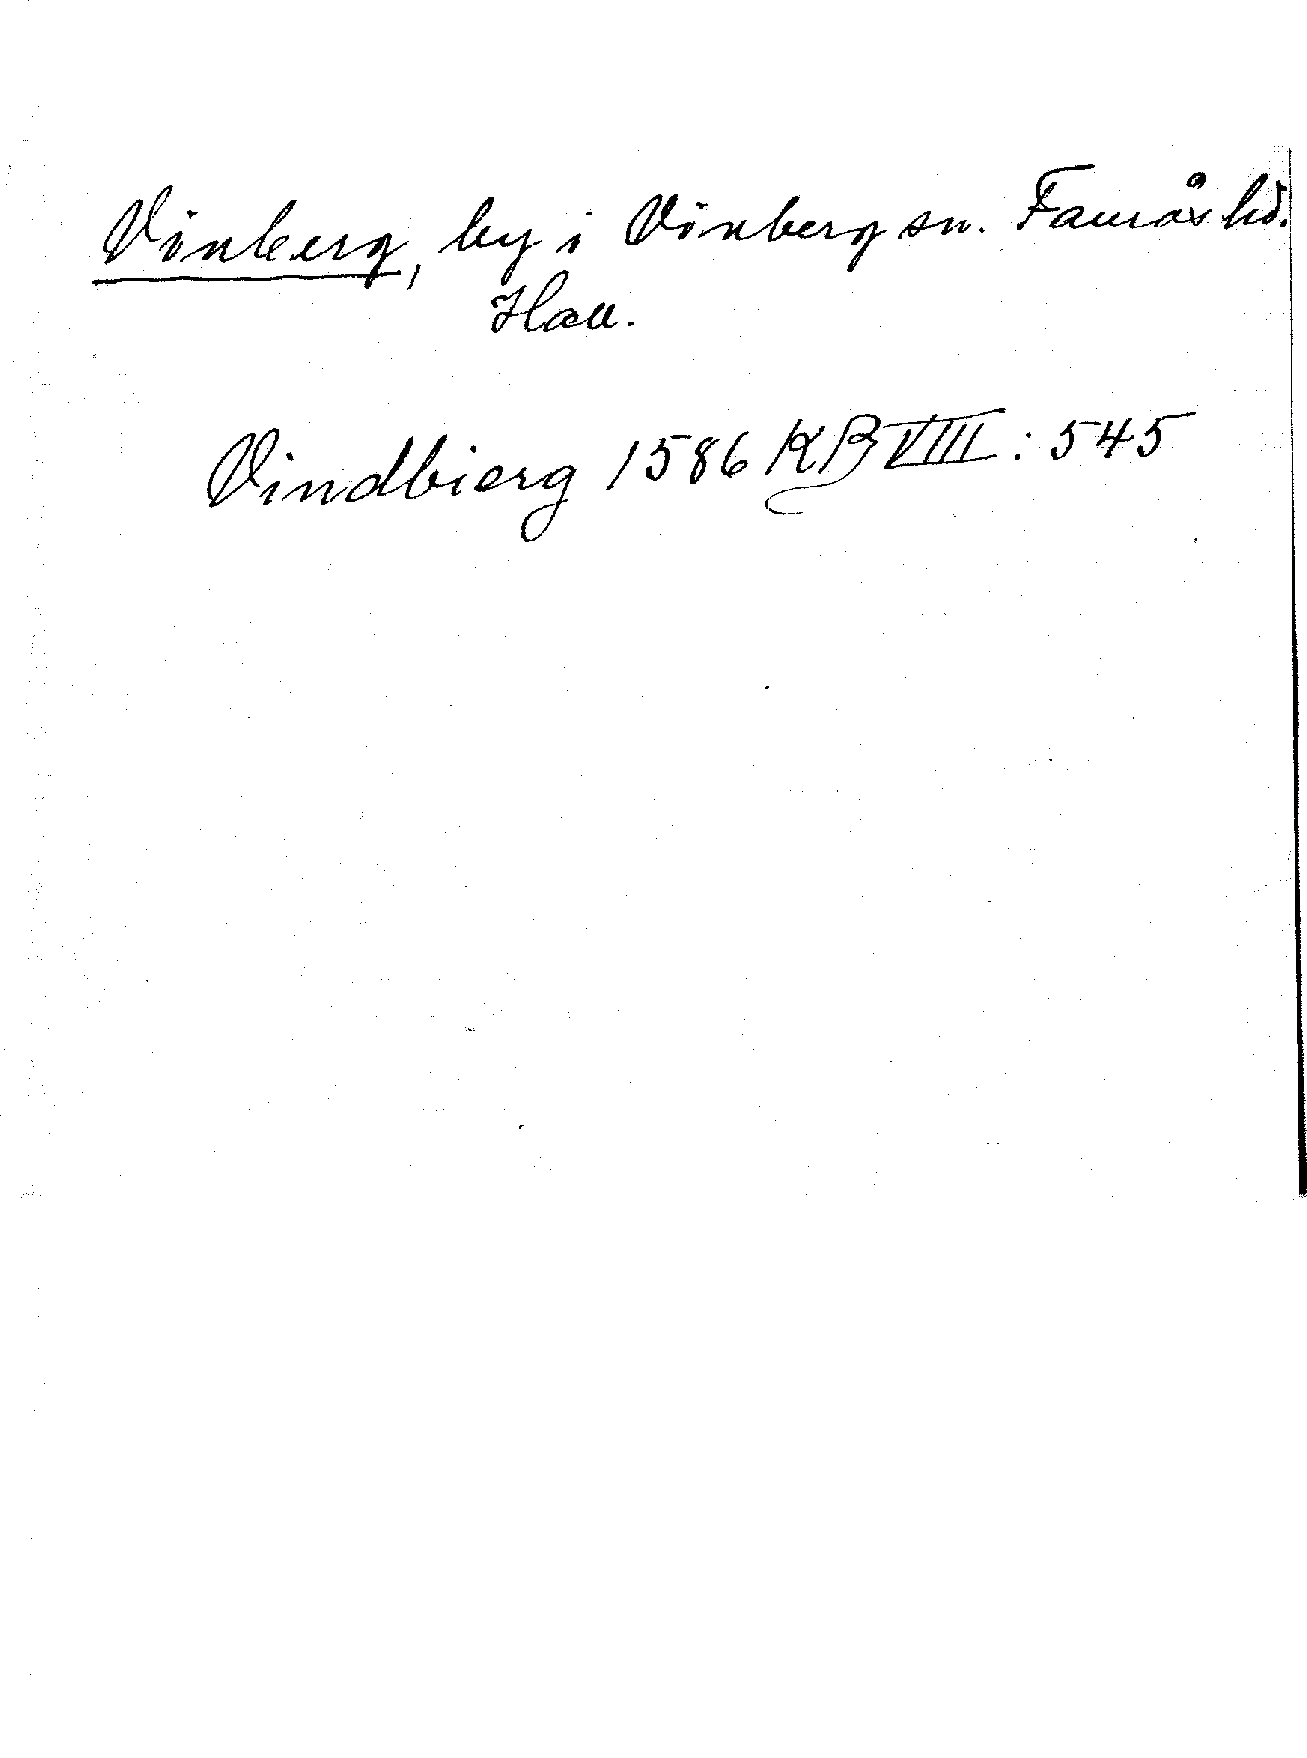 Vinberg, by i Vinberg sn. Faurås hd.
Hall.
Vindbierg 1586 KB VIII: 545